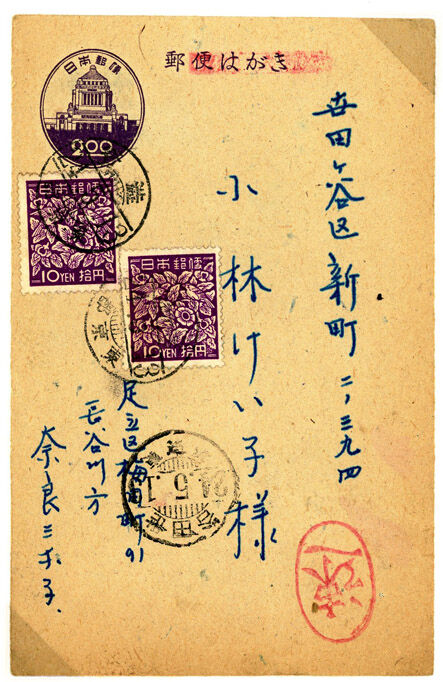 郵便はがき
日本郵便
2.00
日本郵便
10YEN 拾円
日本郵便
10YEN 拾円
世田ヶ谷区新町二ノ三九四
小林けい子様
足立区梅田町91
長谷川方
奈良三木子
24.5.1